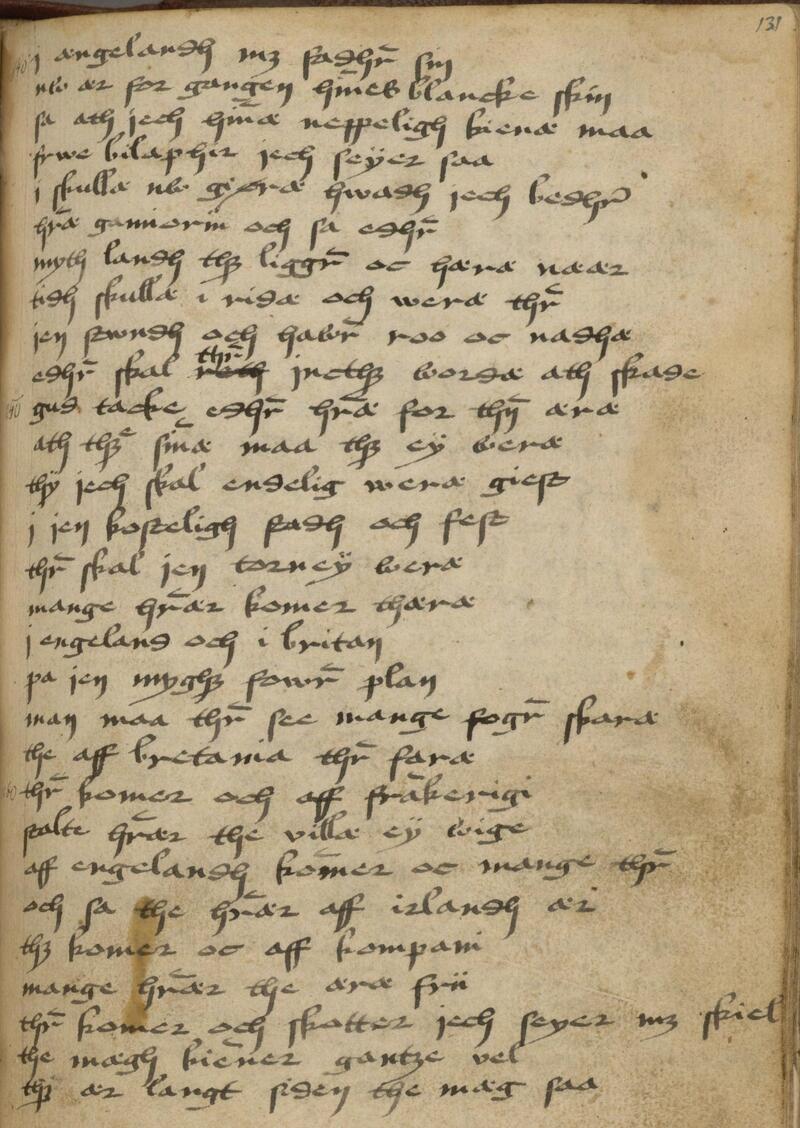 131
j ængelandh mꝫ fadhr̄ sin
nw ær for gangen hīnes blancke skin
sa ath jech hīnæ neppeligh kienæ maa
frwe bilaphir jech seyer saa
i skullæ nw giøræ hwadh jech bedhr̄
hr̄æ gamiorin och sa edhr̄
myth landh thꝫ liggr̄ oc hæræ næær
tidh skullæ i ridæ och weræ thr̄
jen stwndh och hawr̄ roo oc nadhæ
edhr̄ skal thr̄ incthꝫ wordæ ath skade
gud tacke edhr̄ hr̄æ for thȳ æræ
ath thꝫ sīnæ maa thꝫ ey weræ
thy jech skal endelig weræ giest
j jen kosteligh stadh och fest
thr̄ skal jen torney weræ
mange hr̄ær komer thæræ
j engeland och i britan
pa jen myghꝫ fowr̄ plan
man maa thr̄ see mange fogr̄ skaræ
the aff bretania thr̄ faræ
thr̄ komer och aff frākerigi
stalte hr̄ær the villæ ey wige
aff engelandh kōmer oc mange thr̄
och sa the hr̄ær aff irlandh ær
thꝫ komer oc aff kompani
mange hr̄ær the æræ frii
thr̄ komer och skotter jech seyer mꝫ skiel
the mægh kiēner gantze vel
thꝫ ær langt siden the mæg saa